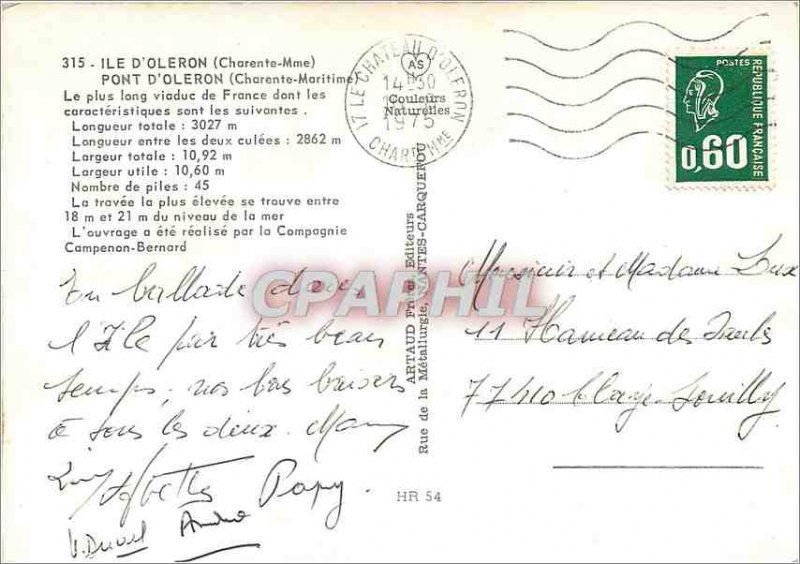 315 - ILE D'OLERON (Charente-Mme)
PONT D'OLERON (Charente-Maritime)
Le plus long viaduc de France dont les
caractéristiques sont les suivantes .
Longueur totale : 3027 m
Longueur entre les deux culées : 2862 m
Largeur totale : 10,92 m
Largeur utile : 10,60 m
Nombre de piles : 45
La travée la plus élevée se trouve entre
18 m et 21 m du niveau de la mer
L'ouvrage a été réalisé par la Compagnie
Campenon-Bernard
En ballade dans
l'Ile par très beau
temps, nos bons baisers
à tous les deux. Mamy
Papy.
André
17 LE CHATEAU D'OLERON
AS
14-30
1975
CHARENTE MME
Couleurs
Naturelles
ARTAUD Frères Editeurs
Rue de la Métallurgie, NANTES-CARQUEFOU
HR 54
POSTES
REPUBLIQUE FRANÇAISE
0,60
Monsieur et Madame
11 Hameau des
77410 Claye-Souilly
CPAPHIL